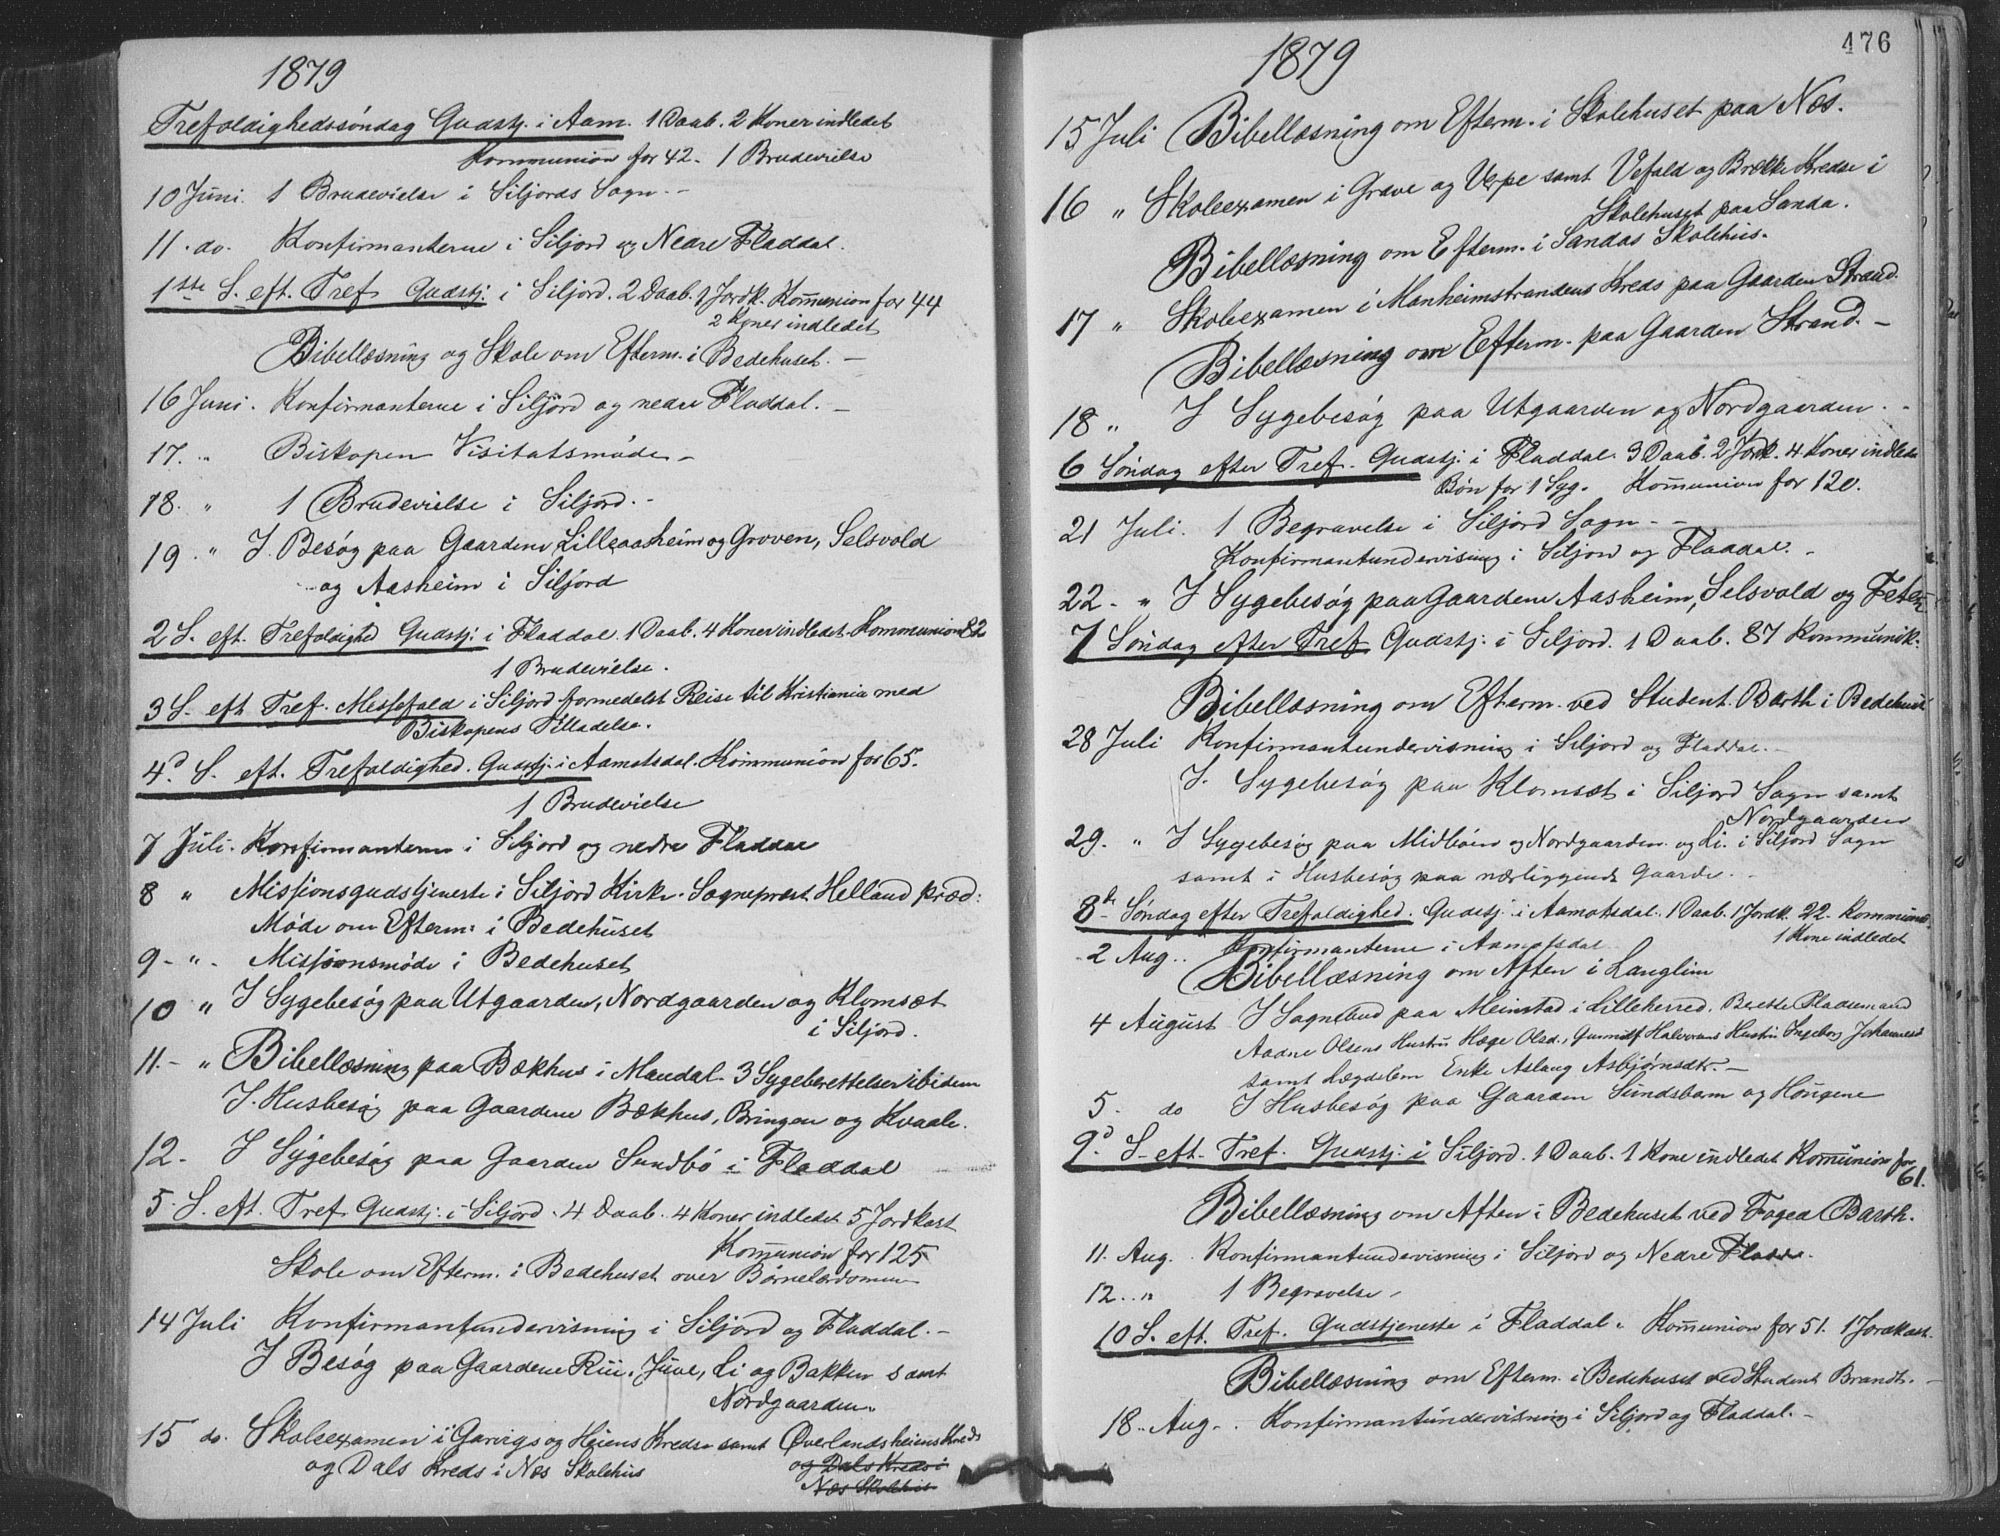 1879
Trefoldighedssöndag Gudstj. i Aam. 1 Daab. 2 Koner indledet
Kommunion for 42. 1 Brudevielse
10 Juni. 1 Brudevielse i Siljords Sogn.
11. do. Konfirmanterne i Siljord og Nedre Fladdal.
1ste S. eft. Tref. Gudstj. i Siljord. 2 Daab. 1 Jordk. Kommunion for 44
2 Koner indledet
Bibellæsning og Skole om Efterm. i Bedehuset. —
16 Juni. Konfirmanterne i Siljord og nedre Fladdal. —
17. „ Biskopen Visitatsmøde —
18. „ 1 Brudevielse i Siljord. -
19. „ I Besøg paa Gaardene Lilleaasheim og Groven, Selsvold
og Aasheim i Siljord
2 S. eft. Trefoldighed Gudstj. i Fladdal. 1 Daab. 4 Koner indledet. Kommunion 82
1 Brudevielse.
3 S. eft Tref. Messefald i Siljord formedelst Reise til Kristiania med
Biskopens Tilladelse.
4d S. eft. Trefoldighed. Gudstj. i Aamotsdal. Kommunion for 65.
1 Brudevielse
7 Juli. Konfirmanterne i Siljord og nedre Fladdal
8 „ Missionsgudstjeneste i Siljord Kirke. Sogneprest Helland præd:
Møde om Efterm: i Bedehuset
9 - „ - Missionsmøde i Bedehuset
10 „ I Sygebesøg paa Utgaarden, Nordgaarden og Klomsæt
i Siljord.
11. - „ Bibellæsning paa Bækhus i Mandal. 3 Sygeberettelser ibidem
I Husbesøg paa Gaardene Bækhus, Bringen og Kvaale.
12 - I Sygebesøg paa Gaarden Sundbö i Fladdal
5 S. eft. Tref. Gudstj. i Siljord. 4 Daab. 4 Koner indledet 5 Jordkast
Kommunion for 125
Skole om Efterm. i Bedehuset over Børnelærdommen
14 Juli Konfirmantundervisning i Siljord og Fladdal. —
I Besøg paa Gaardene Rui, Juve, Li og Bakken samt
Nordgaarden.
15 do. Skoleexamen i Garvigs og Heiens Kredse samt Øverlandsheiens Kreds
og Dals Kreds i Næs Skolehus
og Dals Kreds i
Næs Skolehus
476
1879
15 Juli Bibellæsning om Efterm. i Skolehuset paa Næs.
16 „ Skoleexamen i Grave og Verpe samt Vefald og Brekke Kredse i
Skolehuset paa Sanda.
Bibellæsning om Efterm. i Sandas Skolehus.
17 „ Skoleexamen i Manheimstrandens Kreds paa Gaarden Strand
Bibellæsning om Efterm. paa Gaarden Strand. —
18 „ I Sygebesøg paa Utgaarden og Nordgaarden. -
6 Söndag efter Tref. Gudstj. i Fladdal. 3 Daab. 2 Jordk. 4 Koner indledet
Bön for 1 Syg. Kommunion for 120.
21 Juli. 1 Begravelse i Siljord Sogn - -
Konfirmantundervisning i Siljord og Fladdal. -
22. „ I Sygebesøg paa Gaardene Aasheim, Selsvold og
7 Söndag efter Tref Gudstj. i Siljord. 1 Daab. 87 Kommunik.
Bibellæsning om Efterm. ved Student Barth i Bedehuset
28 Juli Konfirmantundervisning i Siljord og Fladdal. -
I Sygebesøg paa Klomsæt i Siljord Sogn samt
Nordgaarden
29. „ I Sygebesøg paa Midböen og Nordgaarden og Li. i Siljord Sogn
samt i Husbesøg paa nærliggende Gaarde. -
8de Söndag efter Trefoldighed. Gudstj. i Aamotsdal. 1 Daab. 1 Jordk. 22 Kommunik.
1 Kone indledet
2 Aug.. Konfirmanterne i Aamotsdal
Bibellæsning om Aften i Langlim
4 August I Sognebud paa Meinstad i Lilleherred. Pladsemand
Aadne Olsens Hustru Hæge Olsd., Gunnulf Halvorsens Hustru Ingeborg Johannesd
samt Lægdelem Enke Aslaug Asbjørnsdtr. —
5. do I Husbesøg paa Gaarden Sundsbarm og Haugene
9d. S. eft. Tref. Gudstj. i Siljord. 1 Daab. 1 Kone indledet Kommunion for
61.
Bibellæsning om Aften i Bedehuset ved Foged Barth.
11. Aug. Konfirmantundervisning i Siljord og Nedre Fladda.
12.. „ 1 Begravelse -
10 S. eft. Tref. Gudstjeneste i Fladdal. Kommunion for 51. 1 Jordkast.
Bibellæsning om Efterm. i Bedehuset ved Student Brandt. —
18.. Aug.. Konfirmantundervisning i Siljord og Fladdal. -